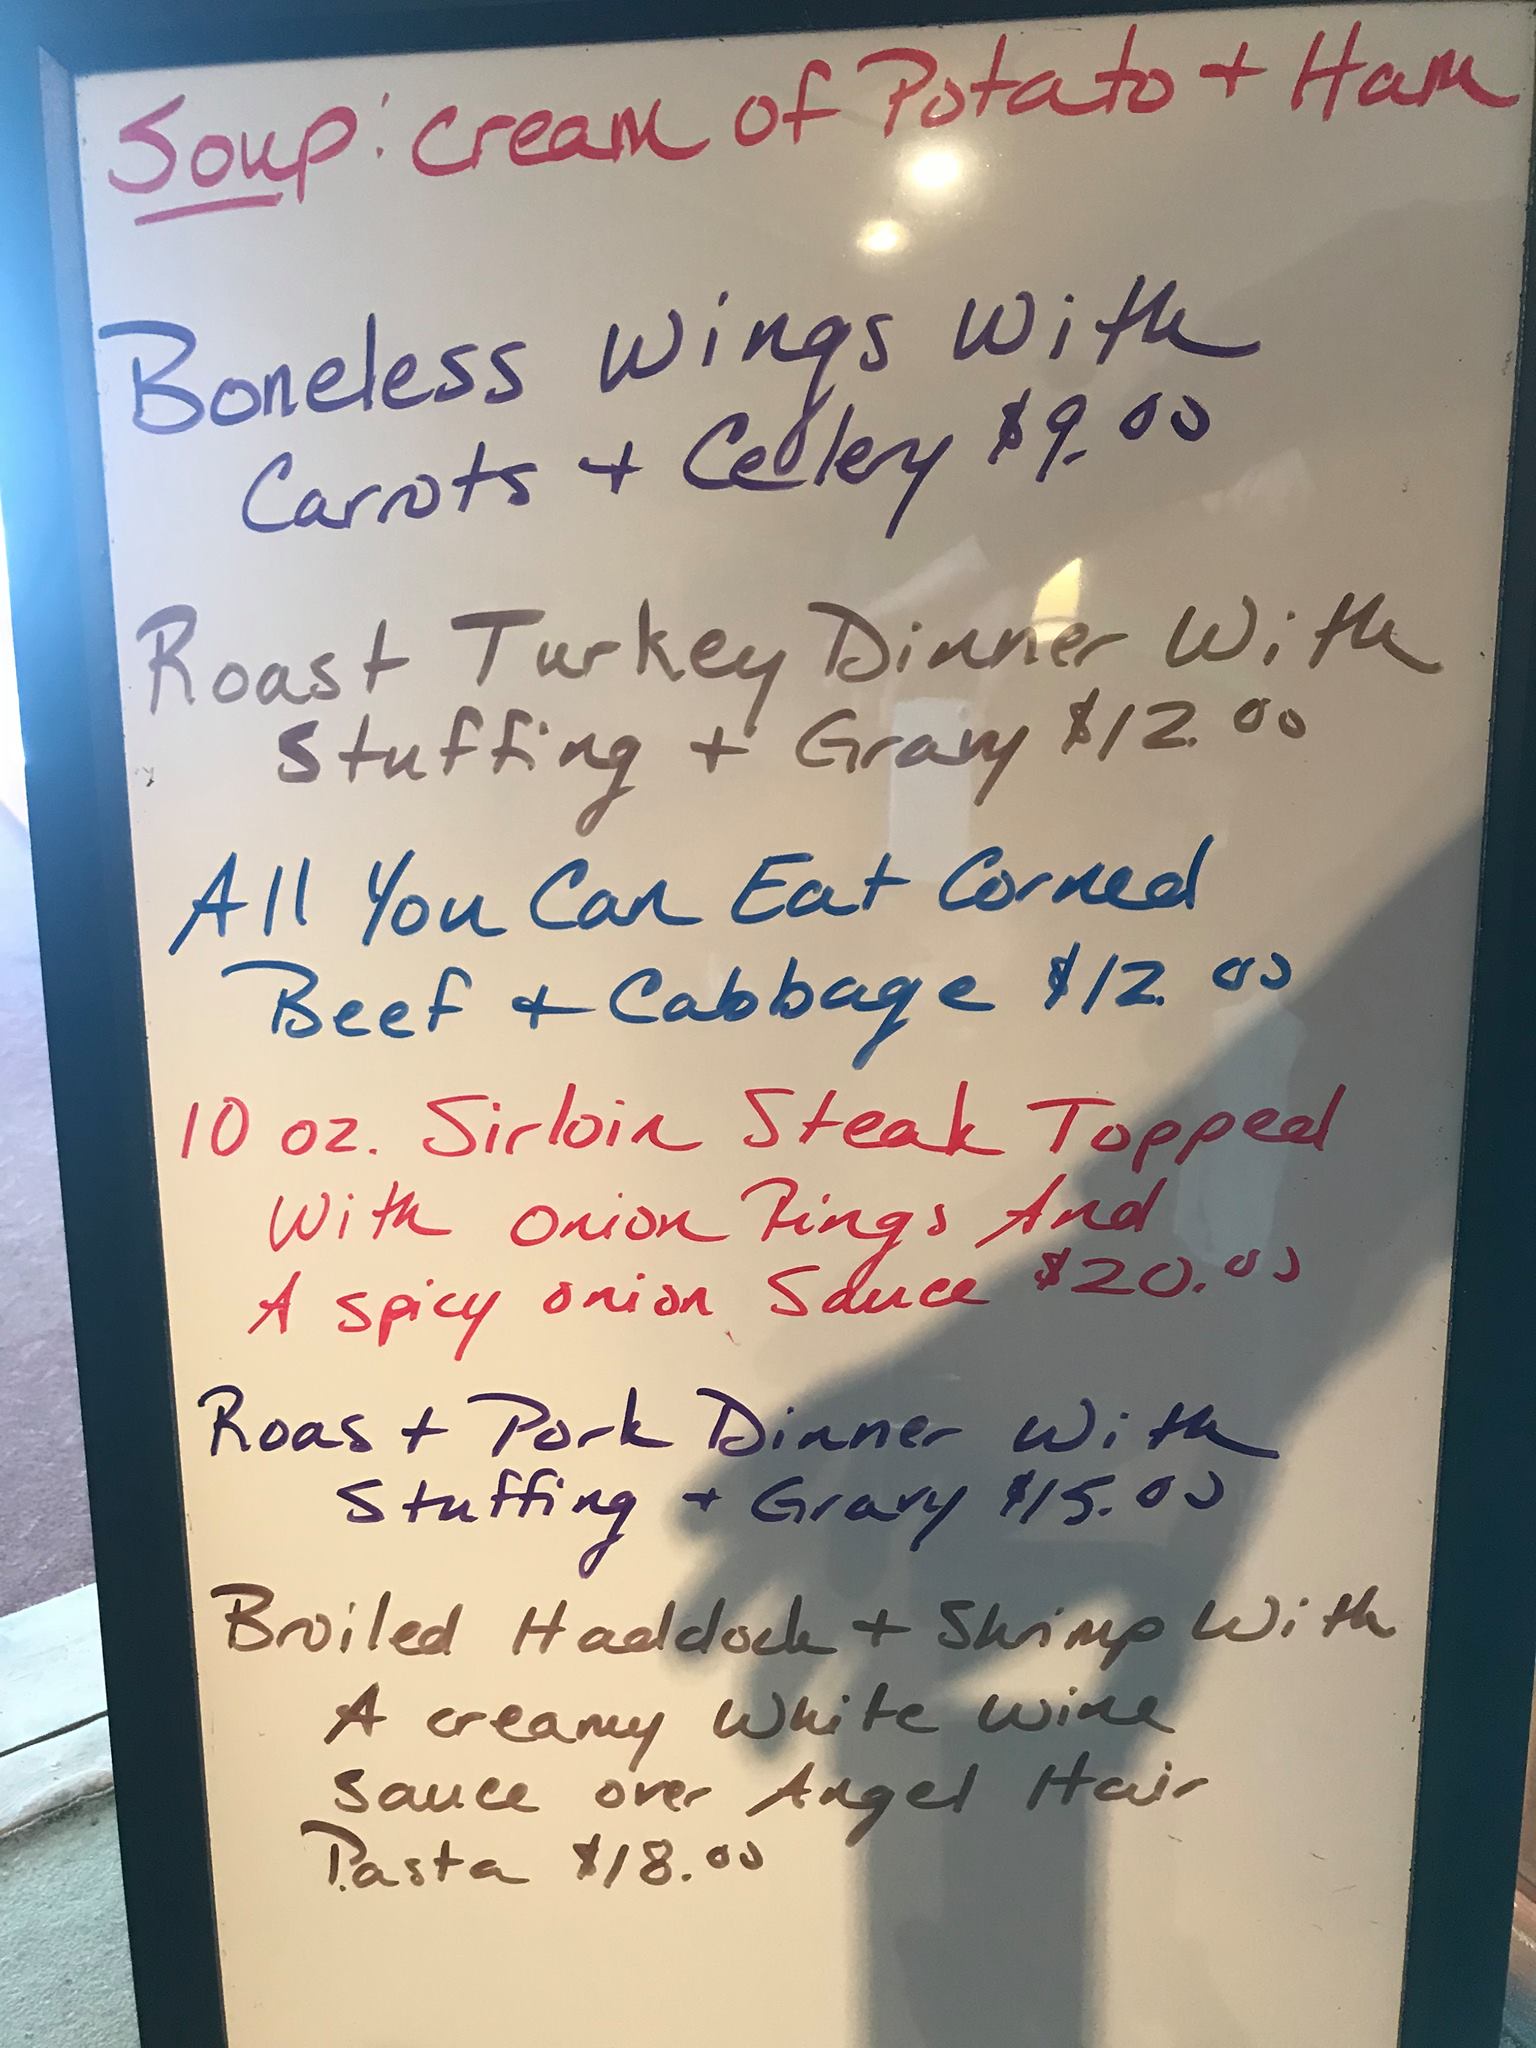 Soup: Cream of Potato + Ham
Boneless Wings With
Carrots + Cellery $9.00
Roast Turkey Dinner With
Stuffing + Gravy $12.00
All You Can Eat Corned
Beef + Cabbage $12.00
10 oz. Sirloin Steak Topped
With Onion Rings And
A Spicy Onion Sauce $20.00
Roast Pork Dinner With
Stuffing + Gravy $15.00
Broiled Haddock + Shrimp With
A Creamy White Wine
Sauce over Angel Hair
Pasta $18.00